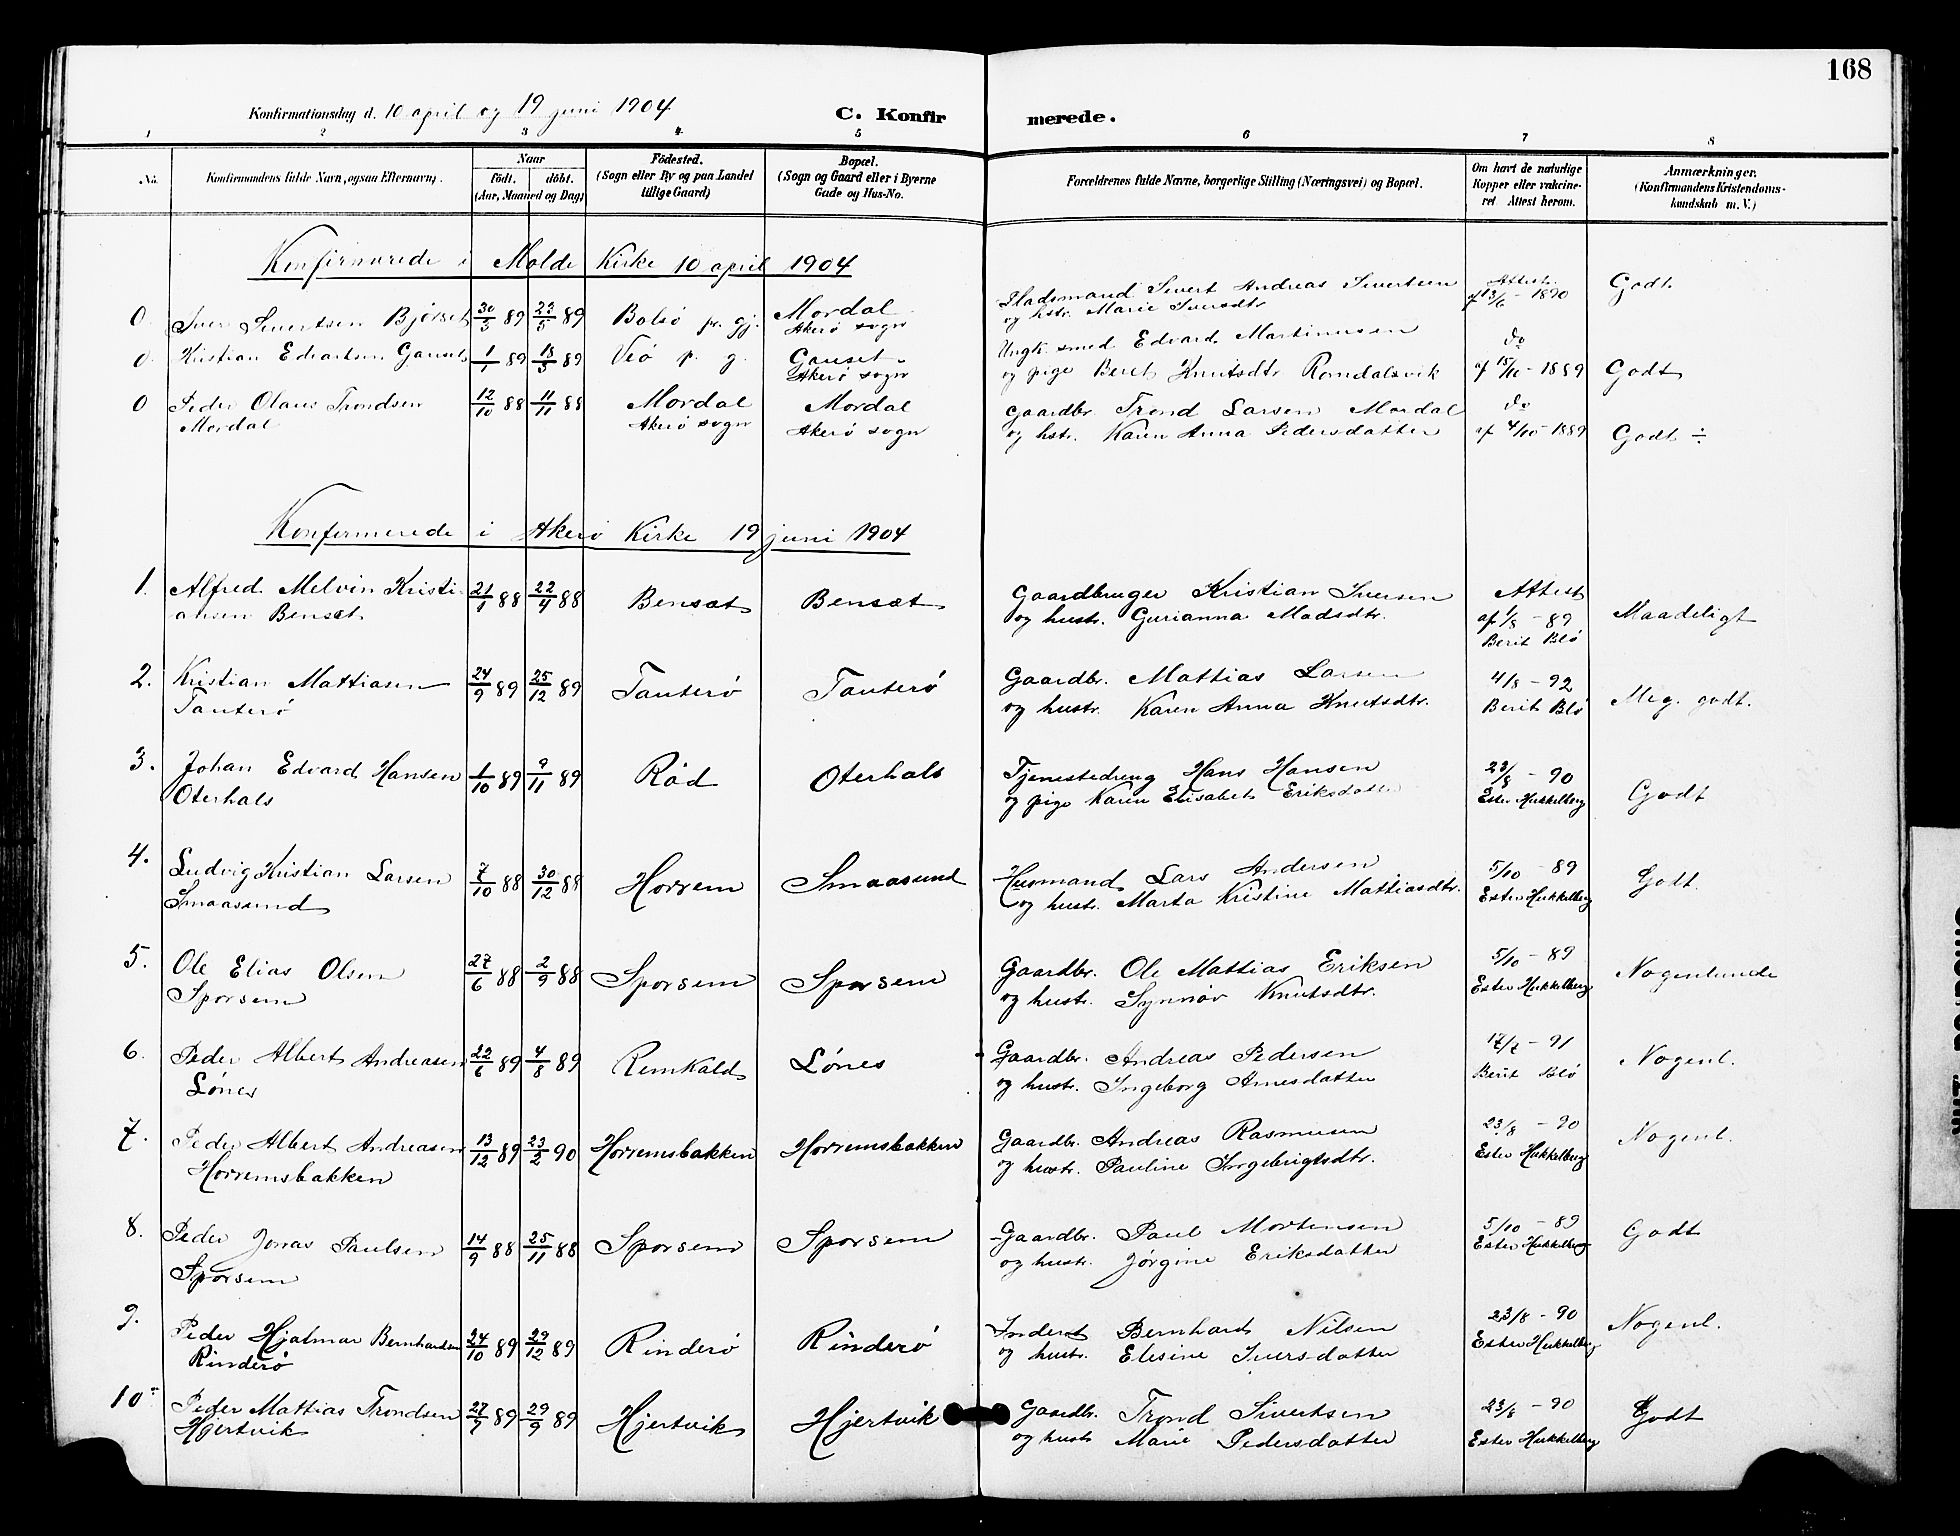 168
Konfirmationsdag d. 10 april og 19 juni 1904
C. Konfirmerede.
1 2 3 4 5 6 7 8
No. Konfirmandens fulde Navn, ogsaa Efternavn.
Naar
födt. döbt.
(Aar, Maaned og Dag)
Födested.
(Sogn eller By og paa Landet
tillige Gaard)
Bopæl.
(Sogn og Gaard eller i Byerne
Gade og Hus-No.
Forældrenes fulde Navne, borgerlige Stilling (Næringsvei) og Bopæl.
Om havt de naturlige
Kopper eller vakcine-
ret Attest herom.
Anmærkninger.
(Konfirmandens Kristendoms-
kundskab m. V.)
Konfirmerede i Molde Kirke 10 april 1904
0. Iver Sivertsen Bjørset 30/3 89 22/5 89 Bolsø pr. gj. Mordal Akerø sogn
Pladsmand Sivert Andreas Sivertsen
og hstr. Marie Iversdtr
Attest
af 13/6 - 1890
Godt
0. Kristian Edvartsen Gauset 1/1 89 13/3 89 Veø p. g. Gauset Akerø sogn
Ungk. smed Edvard Martinusen
og pige Beret Knutsdtr Romdalsvik
do
af 15/10 - 1889
Godt
0 Peder Olaus Trondsen
Mordal
12/10 88 11/11 88
Mordal
Akerø sogn
Mordal
Akerø sogn
Gaardbr. Trond Larsen Mordal
og hstr. Karen Anna Pedersdatter
do
af 4/10 - 1889
Godt ÷
Konfirmerede i Akerø Kirke 19 juni 1904
1. Alfred Melvin Kristi-
ansen Bensæt
21/1 88 22/4 88 Bensæt Bensæt
Gaardbruger Kristian Iversen
og hustr. Gurianna Madsdtr.
Attest
af 1/8 - 89
Berit Blø
Maadeligt
2. Kristian Mattiasen
Tauterö
24/9 89 25/12 89 Tauterö Tauterö
Gaardbr. Mattias Larsen
og hustr. Karen Anna Knutsdtr.
4/8 - 92
Berit Blø
Meg. godt.
3. Johan Edvard Hansen
Oterhals
1/10 89 9/11 89 Rød Oterhals
Tjenestedreng Hans Hansen
og pige Karen Elisabet Eriksdatter
23/8 - 90
Ester Hukkelberg
Godt
4. Ludvig Kristian Larsen
Smaasund
7/10 88 30/12 88 Horrem Smaasund
Husmand Lars Andersen
og hustr. Marta Kristine Mattiasdtr.
5/10 - 89
Ester Hukkelberg
Godt.
5. Ole Elias Olsen
Sporsem
27/6 88 2/9 88 Sporsem Sporsem
Gaardbr. Ole Mattias Eriksen
og hustr. Synnøv Knutsdtr.
5/10 - 89
Ester Hukkelberg
Nogenlunde
6. Peder Albert Andreasen
Lónes
22/6 89 4/8 89 Lónes
Gaardbr. Andreas Pedersen
og hustr. Ingeborg Arnesdatter
17/7 - 91
Berit Blø
Nogenl.
7. Peder Albert Andreasen
Horremsbakken
13/12 89 23/2 90 Horremsbakken Horremsbakken
Gaardbr. Andreas Rasmusen
og hustr. Pauline Ingebrigtsdtr.
23/8 - 90
Ester Hukkelberg
Nogenl.
8. Peder Jonas Paulsen
Sporsem
14/9 88 25/11 88 Sporsem Sporsem
Gaardbr. Paul Mortensen
og hustr. Jørgine Eriksdatter
5/10 - 89
Ester Hukkelberg
Godt
9. Peder Hjalmar Bernhardsen
Rinderö
24/10 89 29/12 89 Rinderö Rinderö
Inderst Bernhard Nilsen
og hustr. Elesine Iversdatter
23/8 - 90
Ester Hukkelberg
Nogenl.
10. Peder Mattias Trondsen
Hjertvik
27/7 89 29/9 89 Hjertvik Hjertvik
Gaardbr. Trond Sivertsen
og hustr Marie Pedersdatter
23/8 - 90
Ester Hukkelberg
Godt